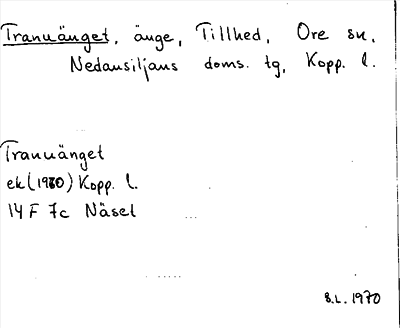 Tranuänget, änge, Tillhed, Ore sn,
Nedansiljans doms. tg, Kopp. l.
Tranuänget
ek (1970) Kopp. l.
14 F 7c Näsel
S.L. 1970